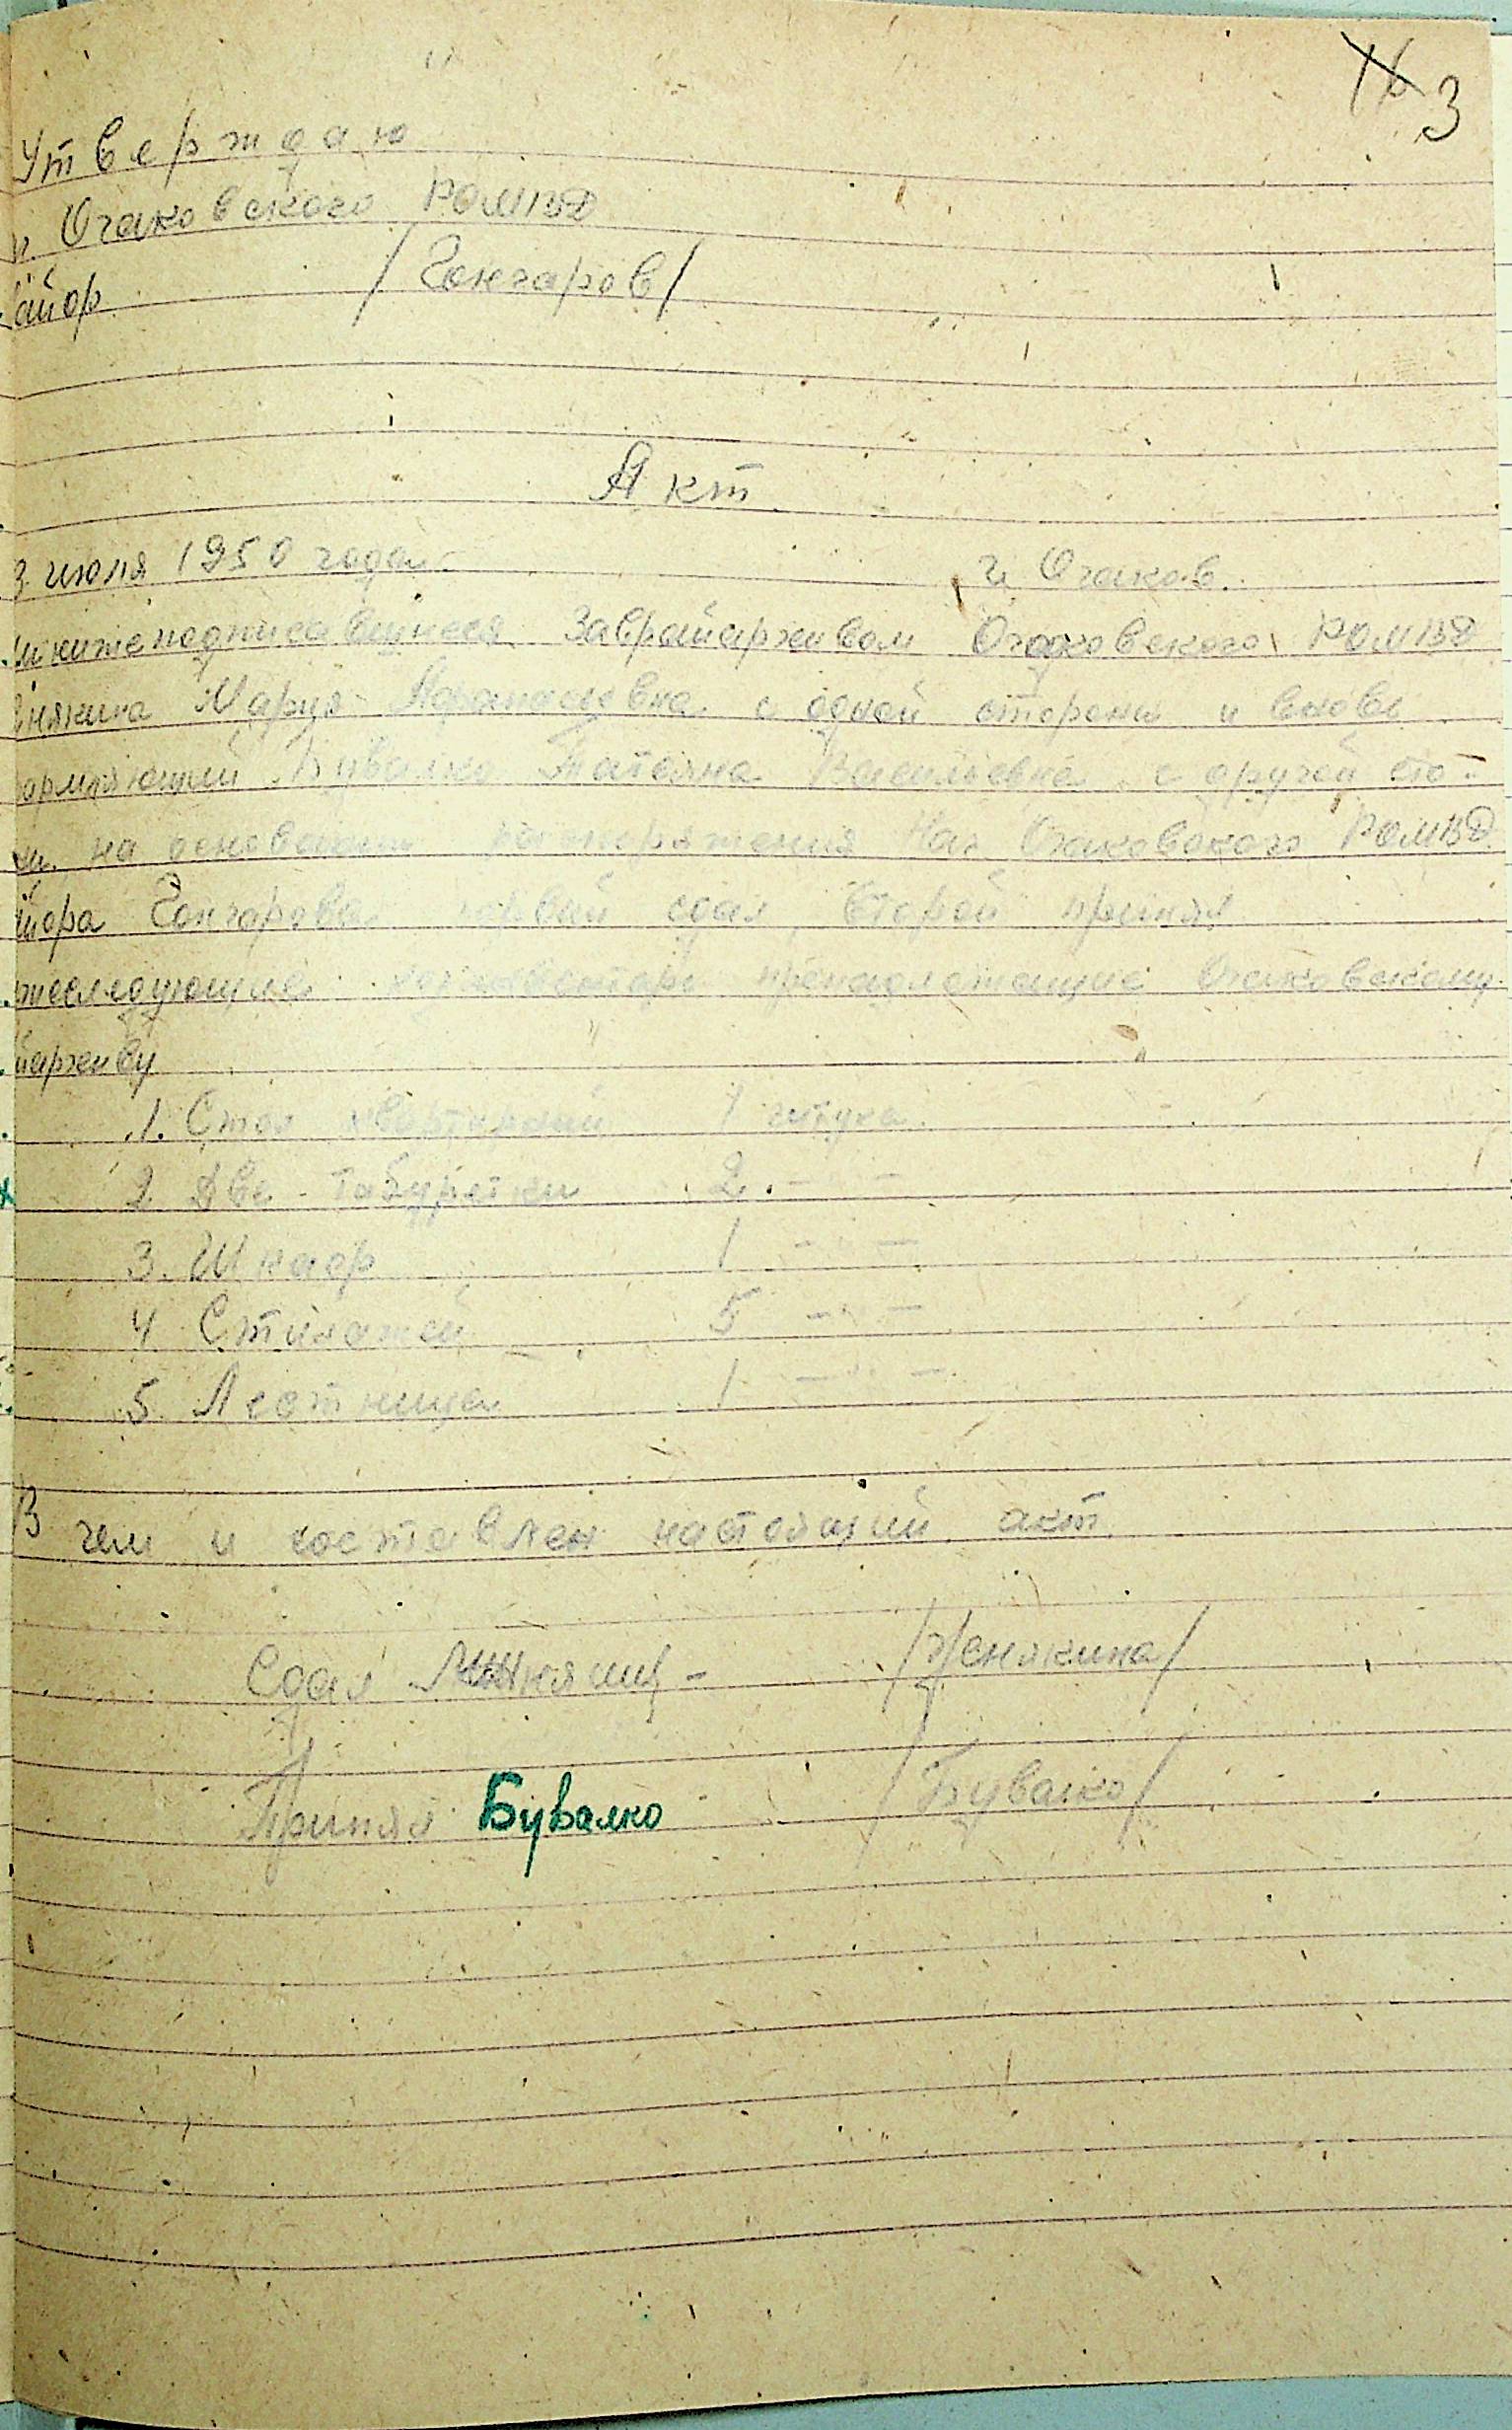 16 3
Утверждаю
Очаковского РОМВД
айор /Гончаров/
Акт
3 июля 1950 года. г. Очаков.
нижеподписавшиеся Заврайархивом Очаковского РОМВД
Мария Афанасевна с одной стороны и вновь
Бувалко Татьяна Васильевна с другой сто-
на основании распоряжения Нач Очаковского РОМВД
йора Гончарова первый сдал, второй принял
жеследующие хозинвентарь Очаковскому
йархиву
1. Стол 1 штука
2. Две табуретки 2 - -
3. Шкаф 1 - -
4 Стилажей 5 - -
5. Лестница 1 - -
В чем и составлен настоящий акт.
Сдал /Женякина/
Принял Бувалко /Бувалко/